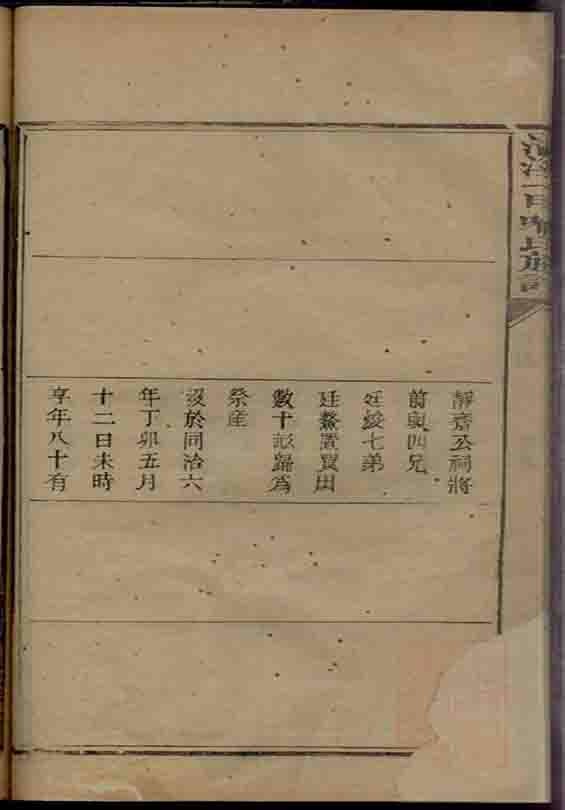 靜齋公祠將
前與四兄
廷綬七弟
廷鰲置買田
數十畝歸為
祭產
歿於同治六
年丁卯五月
十二日未時
享年八十有